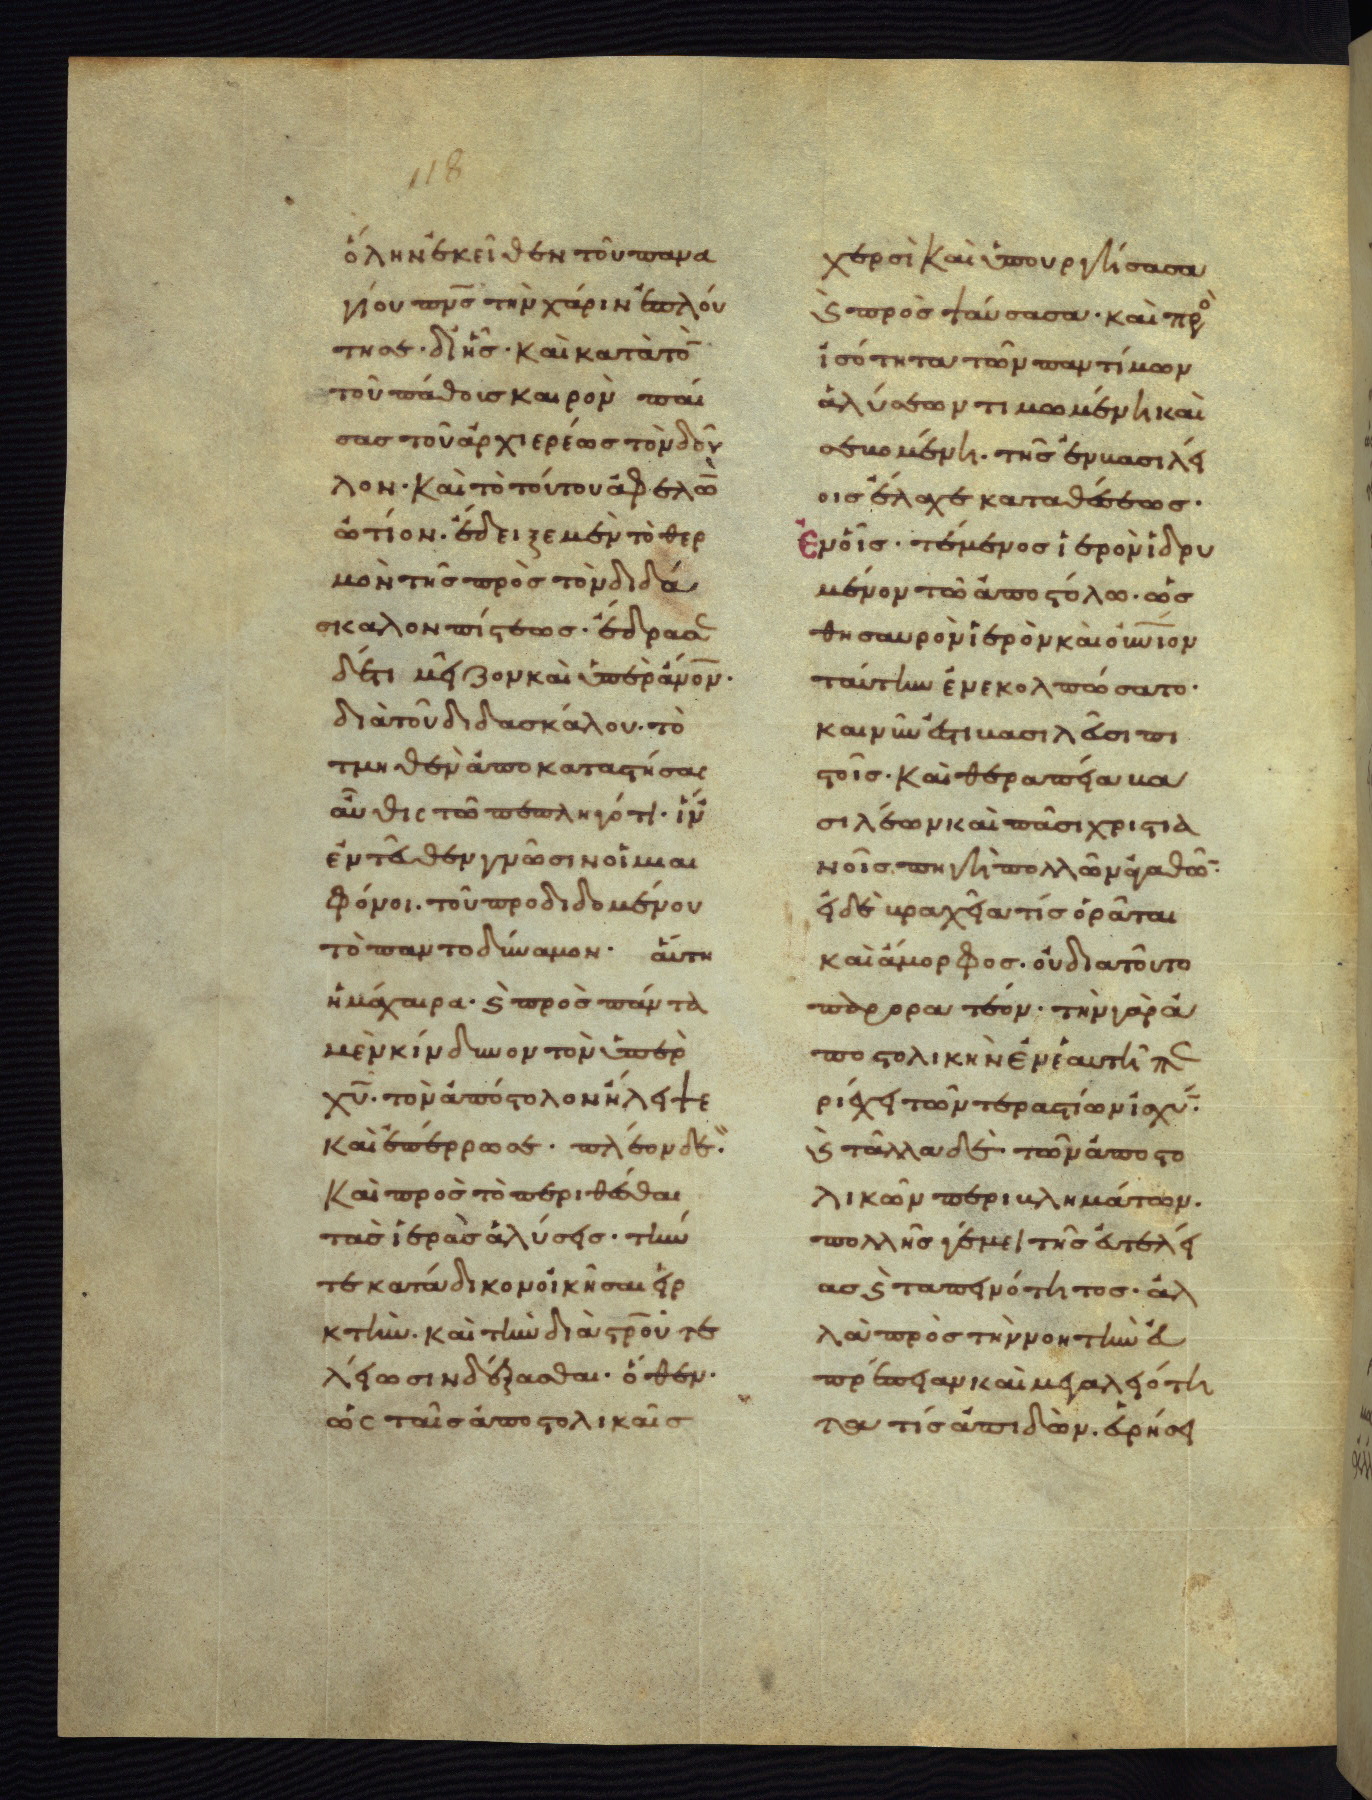 118
ὅλην ἐκεῖθεν τοῦ πανα
γίου πνς τὴν χάριν ἐπλού
τησε· δι ἧς· καὶ κατὰ τὸ
τοῦ πάθους καιρὸν παί
σας τοῦ ἀρχιερέως τὸν δοῦ
λον· καὶ τὸ τούτου ἀφελὼ
ὠτίον· ἔδειξε μὲν τὸ θερ
μὸν τῆς πρὸς τὸν διδά
σκαλον πίστεως· ἔδρασε
δέ τι μεῖζον καὶ ὑπὲρ ἄνον·
διὰ τοῦ διδασκάλου· τὸ
τμηθὲν ἀποκαταστήσας
αὖθις τῶ πεπληγότι· ἵν
ἐντεῦθεν γνῶσιν οἱ μιαι
φόνοι· τοῦ προδιδομένου
τὸ παντοδύναμον· αὕτη
ἡ μάχαιρα· καὶ πρὸς πάντα
μὲν κίνδυνον τὸν ὑπὲρ
χυ· τὸν ἀπόστολον ἤλειψε
καὶ ἐπέρρωσε· πλέον δὲ·
καὶ πρὸς τὸ περιθέσθαι
τὰς ἱερὰς ἁλύσεις· τήν
τε κατάδικον οἰκῆσαι εἱρ
κτὴν· καὶ τὴν διὰ στρου τε
λείωσιν δέξασθαι· ὅθεν·
ὡς ταῖς ἀποστολικαῖς
χερσὶ καὶ ὑπουργήσασα
καὶ προσψαύσασα· καὶ πρὸ
ἰσότητα τῶν παντίμων
ἁλύσεων τιμωμένη καὶ
σεβομένη· τῆς ἐν βασιλεί
οις ἔλαχε καταθέσεως·
Ἐν οἷς· τέμενος ἱερὸν ἱδρυ
μένον τῶ ἀποστόλω· ὡς
θησαυρὸν ἱερὸν καὶ οὐνιον
ταύτην ἐνεκολπώσατο·
καὶ νῦν ἐστι βασιλεῦσι πι
στοῖς· καὶ θεραπεία βα
σιλέων καὶ πᾶσι χριστια
νοῖς· πηγὴ πολλῶν ἀγαθῶ·
εἰ δὲ βραχεῖά τις ὁρᾶται
καὶ ἄμορφος· οὐ διατοῦτο
παρορατέον· τὴν γὰρ ἀ
ποστολικὴν ἐν ἑαυτῆ πε
ριέχει τῶν τεραστίων ἰσχύν·
καὶ τἆλλα δὲ· τῶν ἀποστο
λικῶν περιβλημάτων·
πολλῆς γέμει τῆς εὐτελεί
ας καὶ ταπεινότητος· ἀλ
λὰ πρὸς τὴν νοητὴν εὐ
πρέπειαν καὶ μεγαλειότη
τα τίς ἀπιδὼν· εὑρήσει